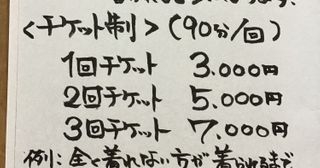 <チケット制>(90分/回)
1回チケット 3.000円
2回チケット 5.000円
3回チケット 7.000円
例:全く着れない方が着られるまで